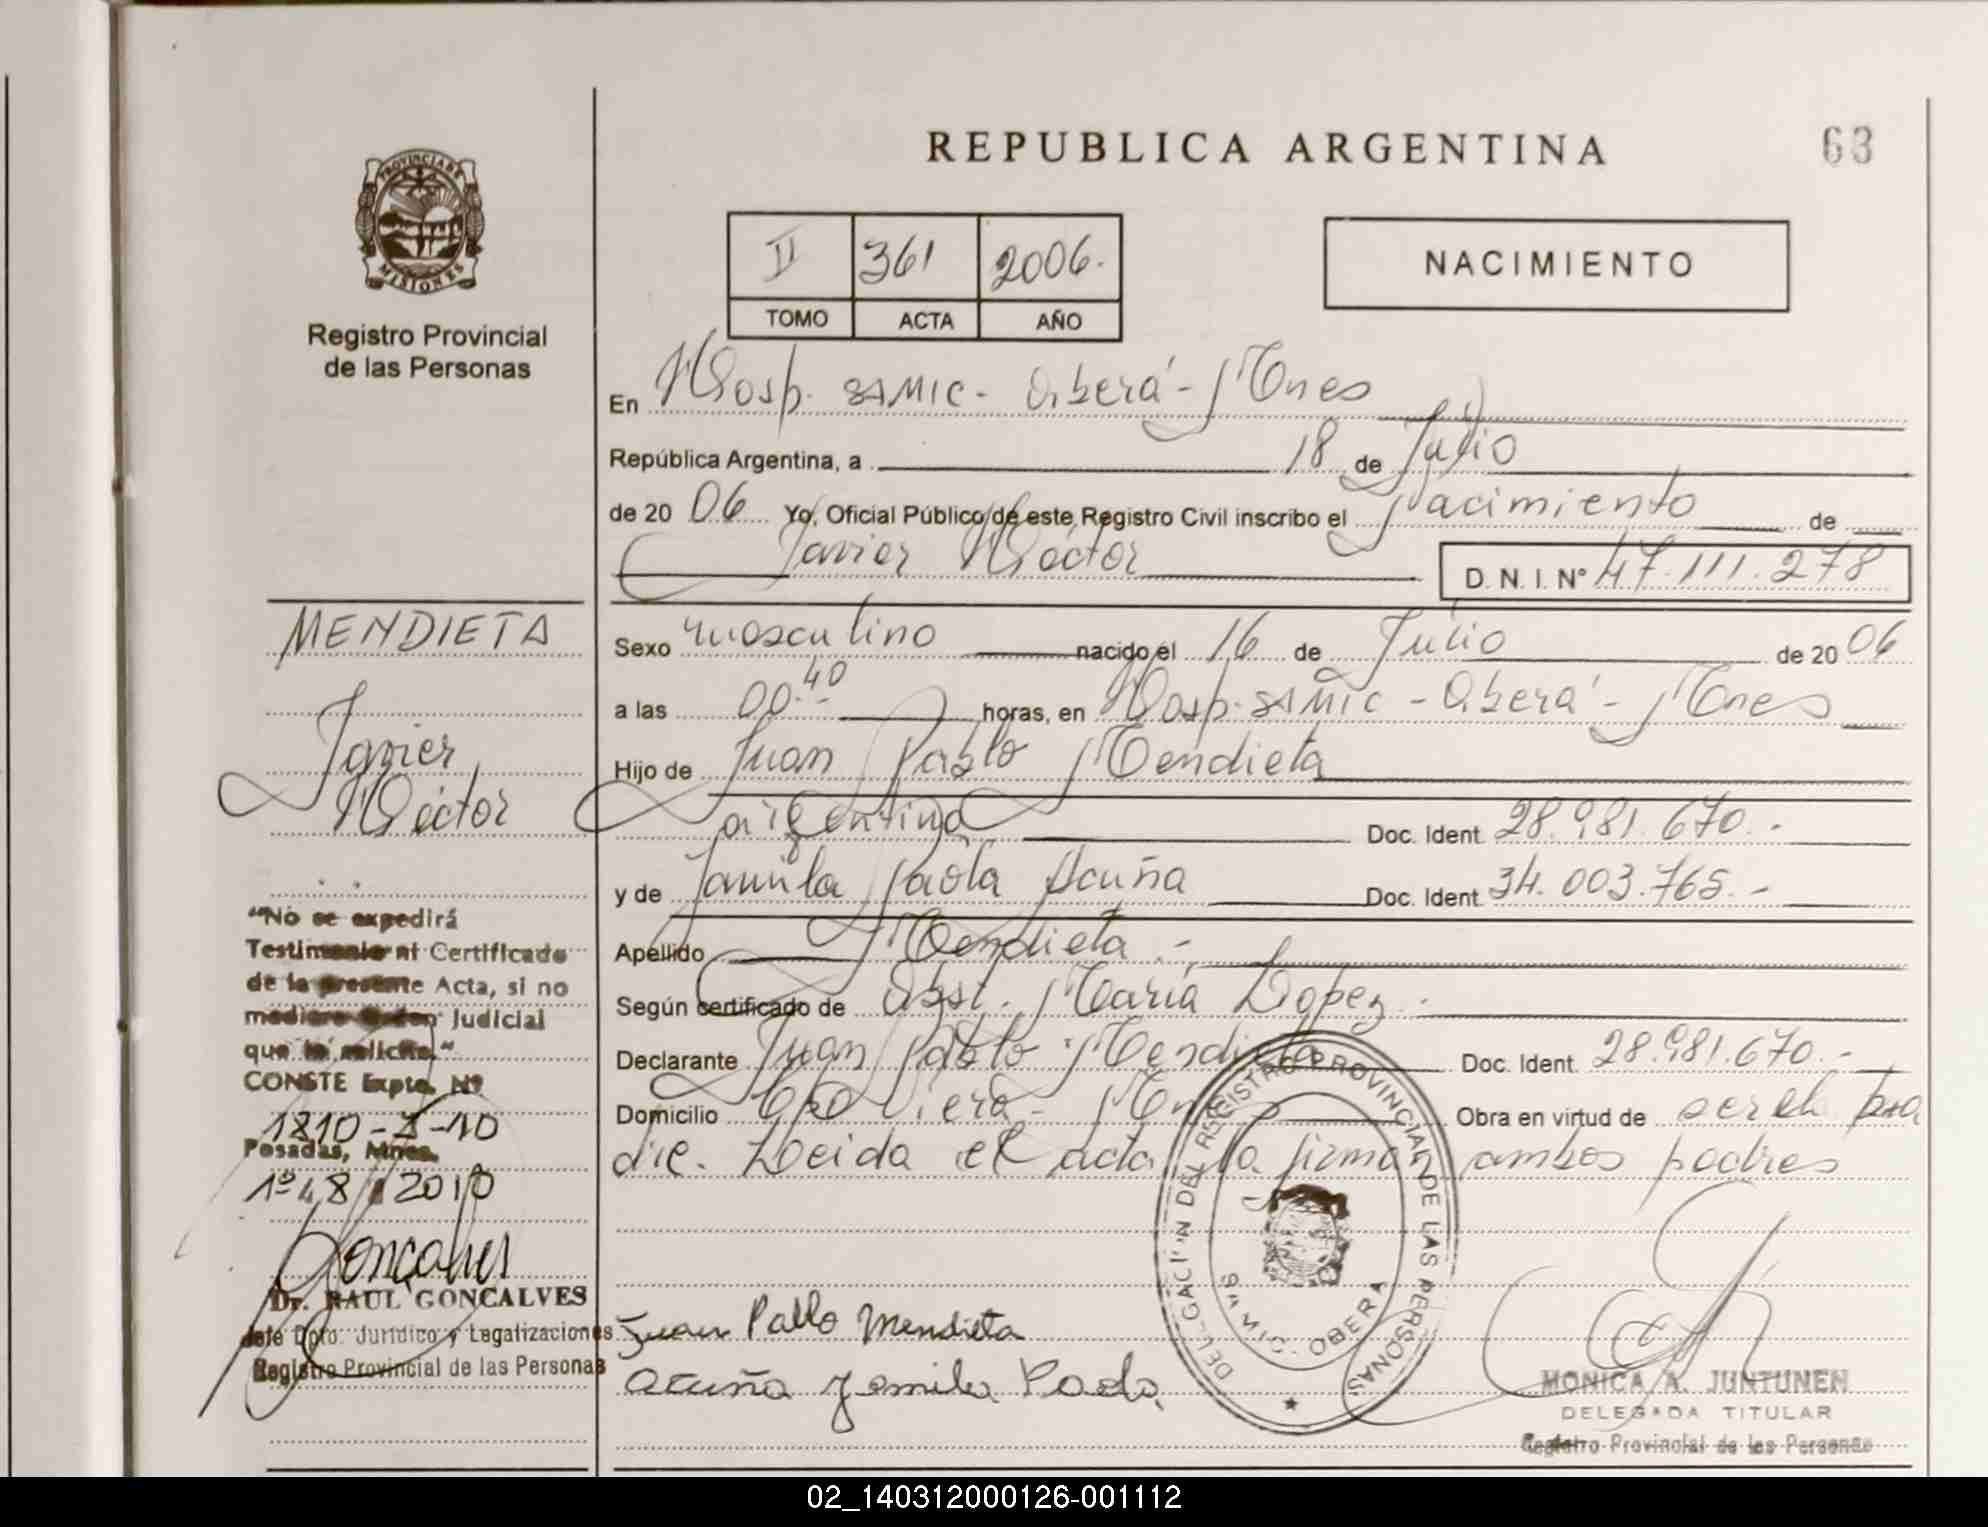 REPUBLICA ARGENTINA
63
PROVINCIA DE
MISIONES
Registro Provincial
de las Personas
II 361 2006.
TOMO ACTA AÑO
NACIMIENTO
En Hosp. SAMIC - Oberá - Mnes
República Argentina, a 18 de Julio
de 20 06 Yo, Oficial Público de este Registro Civil inscribo el Nacimiento de
Javier Héctor D. N. I. Nº 47.111.278
Sexo masculino nacido el 16 de Julio de 20 06
a las 00.40 horas, en Hosp. SAMIC - Oberá - Mnes
Hijo de Juan Pablo Mendieta
argentina Doc. Ident. 28.981.670.-
y de Jamila Paola Acuña Doc. Ident. 34.003.765.-
Apellido Mendieta.-
Según certificado de Obst. María Lopez.
Declarante Juan Pablo Mendieta Doc. Ident. 28.981.670.-
Domicilio Viera - Mnes Obra en virtud de ser el pa
dre. Leida el acta la firman ambos padres
MENDIETA
Javier
Héctor
"No se expedirá
Testimonio ni Certificado
de la presente Acta, si no
mediare Orden Judicial
que lo solicite."
CONSTE Expte. Nº
1810-J-10
Posadas, Mnes.
8 2010
Gonçalves
Dr. RAUL GONCALVES
Jefe Dpto. Jurídico y Legalizaciones
Registro Provincial de las Personas
Juan Pablo Mendieta
Acuña Jamila Paola
DELEGACION DEL REGISTRO PROVINCIAL DE LAS PERSONAS
SAMIC. OBERA
MONICA A. JUNTUNEN
DELEGADA TITULAR
Registro Provincial de las Personas
02_140312000126-001112